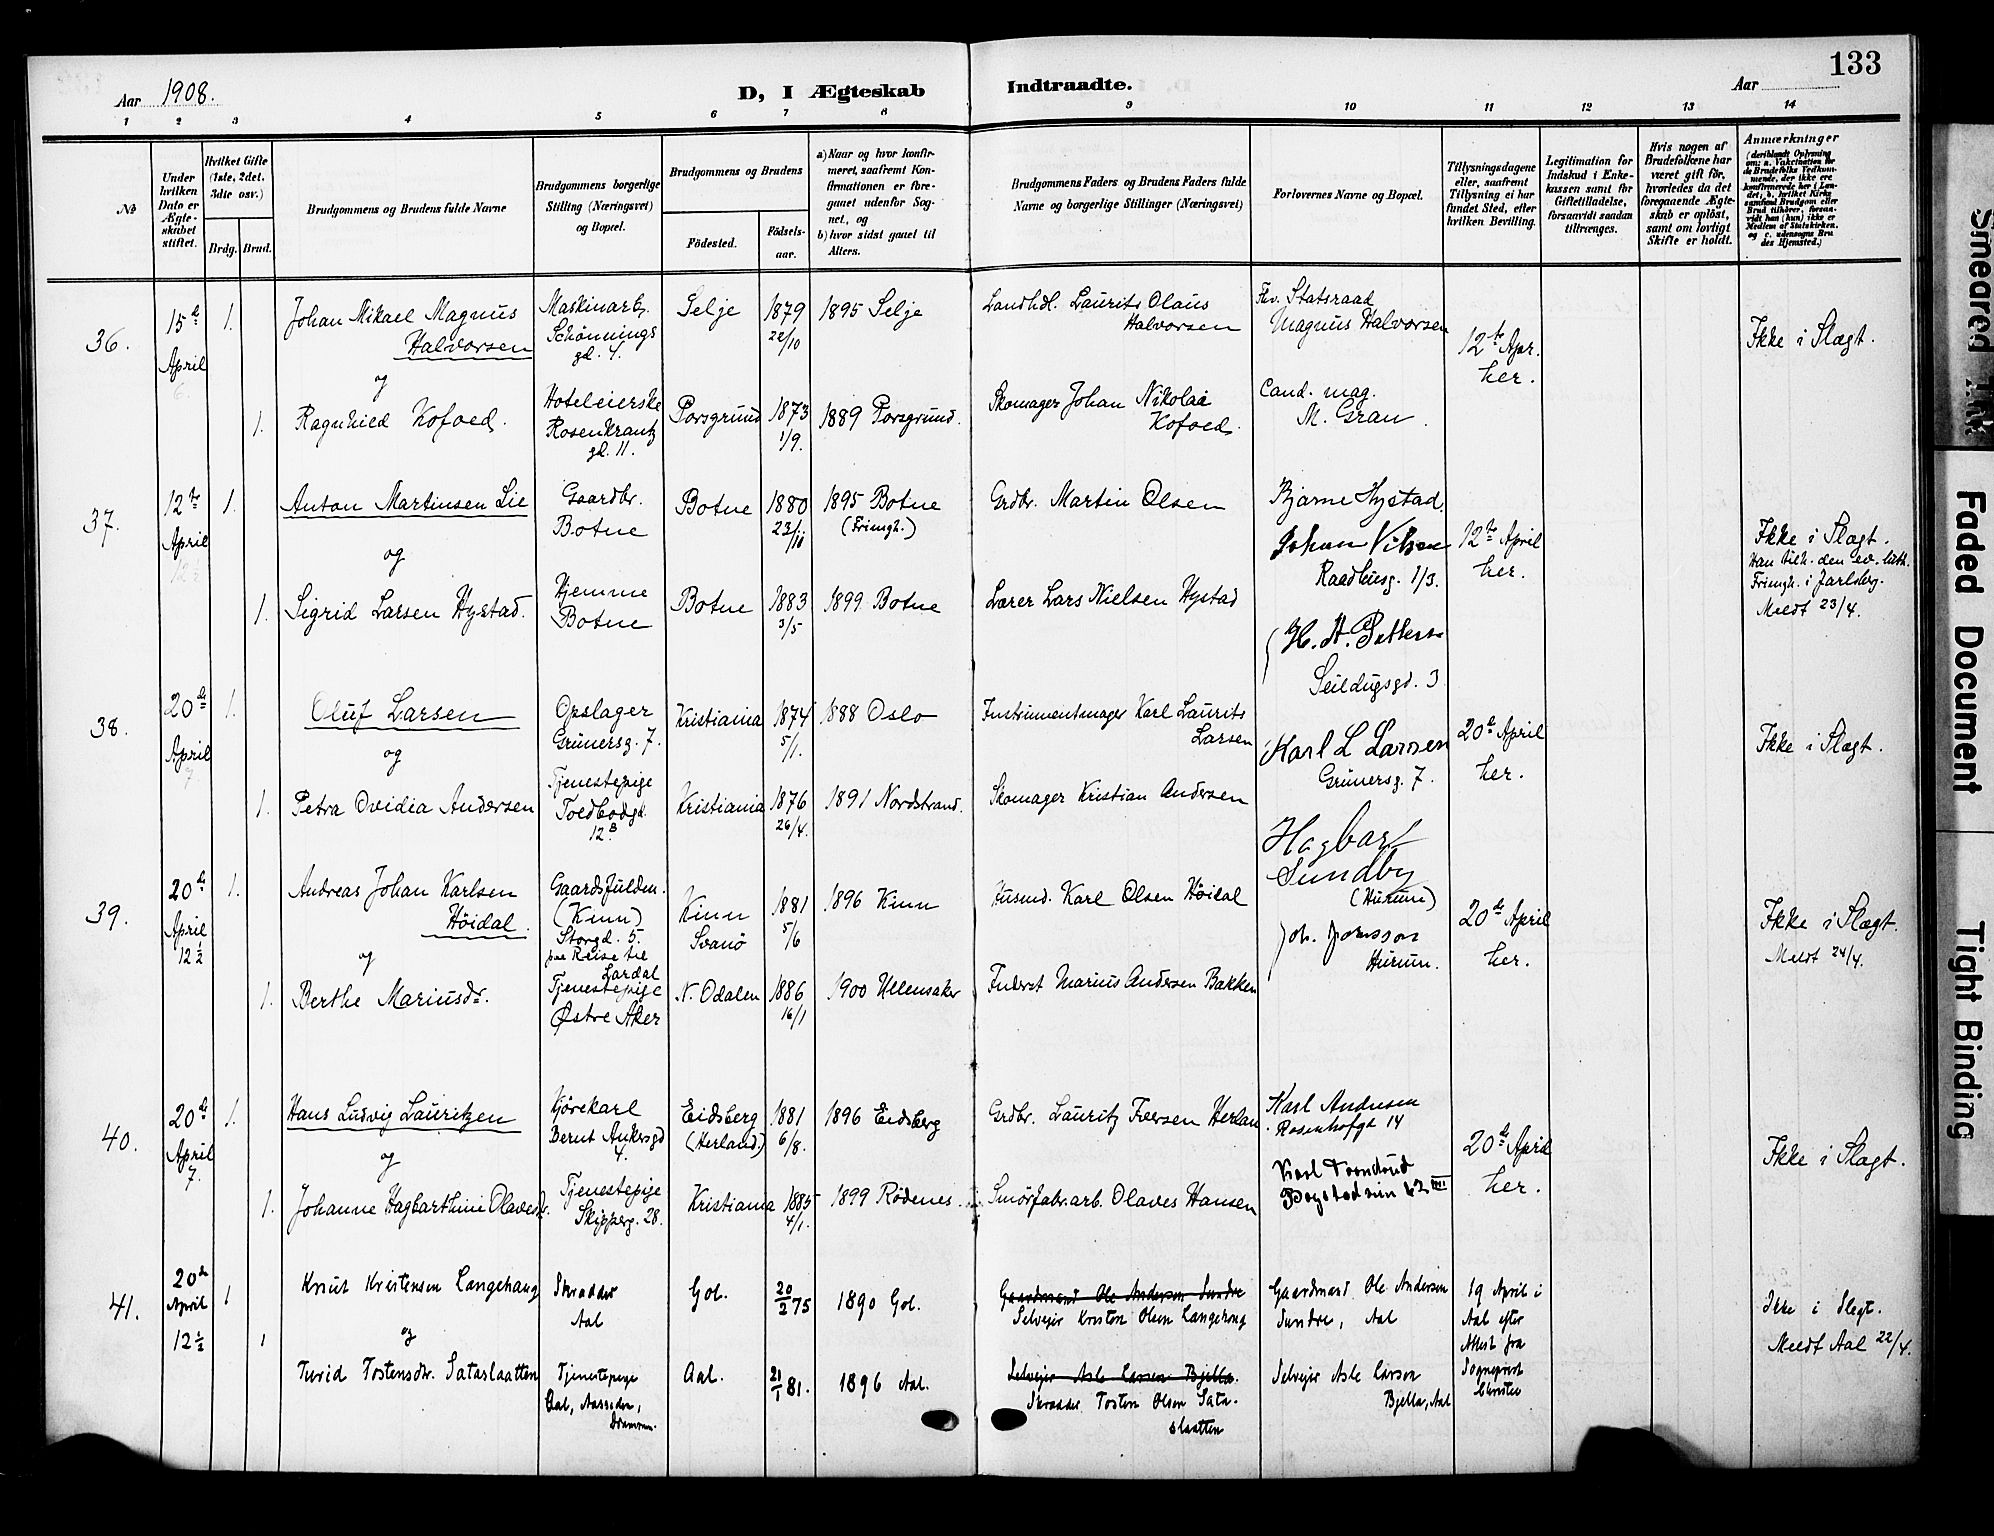 133
Aar 1908.
D, I Ægteskab Indtraadte.
Aar
1 2 3 4 5 6 7 8 9 10 11 12 13 14
№
Under hvilken Dato er Ægteskabet stiftet.
Hvilket Gifte (1ste, 2det, 3die osv.)
Brdg. Brud.
Brudgommens og Brudens fulde Navne
Brudgommens borgerlige Stilling (Næringsvei) og Bopæl.
Brudgommens og Brudens
Fødested.
Fødselsaar.
a) Naar og hvor konfirmeret, saafremt Konfirmationen er foregaaet udenfor Sognet, og
b) hvor sidst gaaet til Alters.
Brudgommens Faders og Brudens Faders fulde Navne og borgerlige Stillinger (Næringsvei)
Forlovernes Navne og Bopæl.
Tillysningsdagene eller, saafremt Tillysning ei har fundet Sted, efter hvilken Bevilling.
Legitimation for Indskud i Enkekassen samt for Giftetilladelse, forsaavidt saadan tiltrænges.
Hvis nogen af Brudefolkene har været gift før, hvorledes da det foregaaende Ægteskab er opløst, samt om lovligt Skifte er holdt.
Anmærkninger
(deriblandt Oplysning om: a. Vakcination for de Brudefolks Vedkommende, der ikke ere konfirmerede her i Landet; b. hvilket Kirkesamfund Brudgom eller Brud tilhører, forsaavidt han (hun) ikke er Medlem af Statskirken, og c. udensogns Brudes Hjemsted.)
36.
15de April 6
1.
Johan Mikael Magnus
Halvorsen
og
Maskinarb.
Schønnings
gd. 4.
Selje
1879
22/10
1895 Selje
Landhdl. Laurits Olaus
Halvorsen
Fhv. Statsraad
Magnus Halvorsen
12te Apr.
her.
Ikke i Slægt.
1.
Ragnhild Kofoed.
Hoteleierske
Rosenkrantz
gd. 11.
Porsgrund
1873
1/9.
1889 Porsgrund.
Skomager Johan Nikolai
Kofoed.
Cand. mag.
M. Gran
37.
12te April
12½
1.
Anton Martinsen Lie
og
Gaardbr.
Botne
Botne
1880
23/11
1895 Botne
(Frimgh.)
Grdbr. Martin Olsen
Bjarne Hystad
Johan Nilsen
Raadhusg. 1/3.
12te April
her.
Ikke i Slægt.
Han tilh. den ev. luth.
Frimgh. i Jarlsberg.
Meldt 23/4.
1.
Sigrid Larsen Hystad.
Hjemme
Botne
Botne
1883
3/5
1899 Botne
Lærer Lars Nielsen Hystad
38.
20de
April
7
1.
Oluf Larsen
og
Opslager
Grünersg. 7.
Kristiania
1874
5/1.
1888 Oslo
Instrumentmager Karl Laurits
Larsen
H. A. Petters
Seildugsgd. 3
Karl L Larsen
Grünersg. 7.
20de April
her.
Ikke i Slægt.
1.
Petra Ovidia Andersen
Tjenestepige
Toldbodgd.
12 B
Kristiania
1876
26/4.
1891 Nordstrand.
Skomager Kristian Andersen
39.
20de
April
12½
1.
Andreas Johan Karlsen
Høidal.
og
Gaardsfuldm.
(Kinn)
Storgd. 5.
paa Reise til
Lardal
Kinn
Svanø
1881
5/6
1896 Kinn
Husmd. Karl Olsen Høidal
Hagbart
Sundby
(Hurum)
Joh. Jonsson
Hurum.
20de April
her.
Ikke i Slægt.
Meldt 24/4.
1.
Berthe Mariusdr.
Tjenestepige
Østre Aker
N. Odalen
1886
16/1
1900 Ullensaker
Inderst Marius Andersen Bakken
40.
20de
April
7.
1.
Hans Ludvig Lauritzen
og
Kjørekarl
Bernt Ankersgd
4.
Eidsberg
(Herland.)
1881
6/8.
1896 Eidsberg
Grdbr. Lauritz Iversen Herlan
Karl Andresen
Rosenhofgt 14
20de April
her.
Ikke i Slægt.
1.
Johanne Hagbarthine Olavesdr.
Tjenestepige
Skipperg. 28.
Kristiania
1885
4/1.
1899 Rødenes.
Smørfabr.arb. Olaves Hansen
Bogstadveien 62 III
41.
20de
April
12½
1
Knut Kristensen Langehaug
og
Skrædder
Aal
Gol.
20/2 75
1890 Gol.
Gaardmand Ole Andersen Sundre
Selveier Kristen Olsen Langehaug
Gaardmand Ole Andersen
Sundre, Aal
19 April i
Aal efter
Attest fra
Sogneprest
Ikke i Slegt.
Meldt Aal 22/4.
1
Turid Tostensdtr. Sataslaatten
Tjenestepige
Aal,
Drammen.
Aal.
21/1 81.
1896 Aal.
Selveier Asle Larsen Bjella.
Skrædder Tosten Olsen Sata-
slaatten
Selveier Asle Larsen
Bjella, Aal
Smeared Ink
Faded Document
Tight Binding